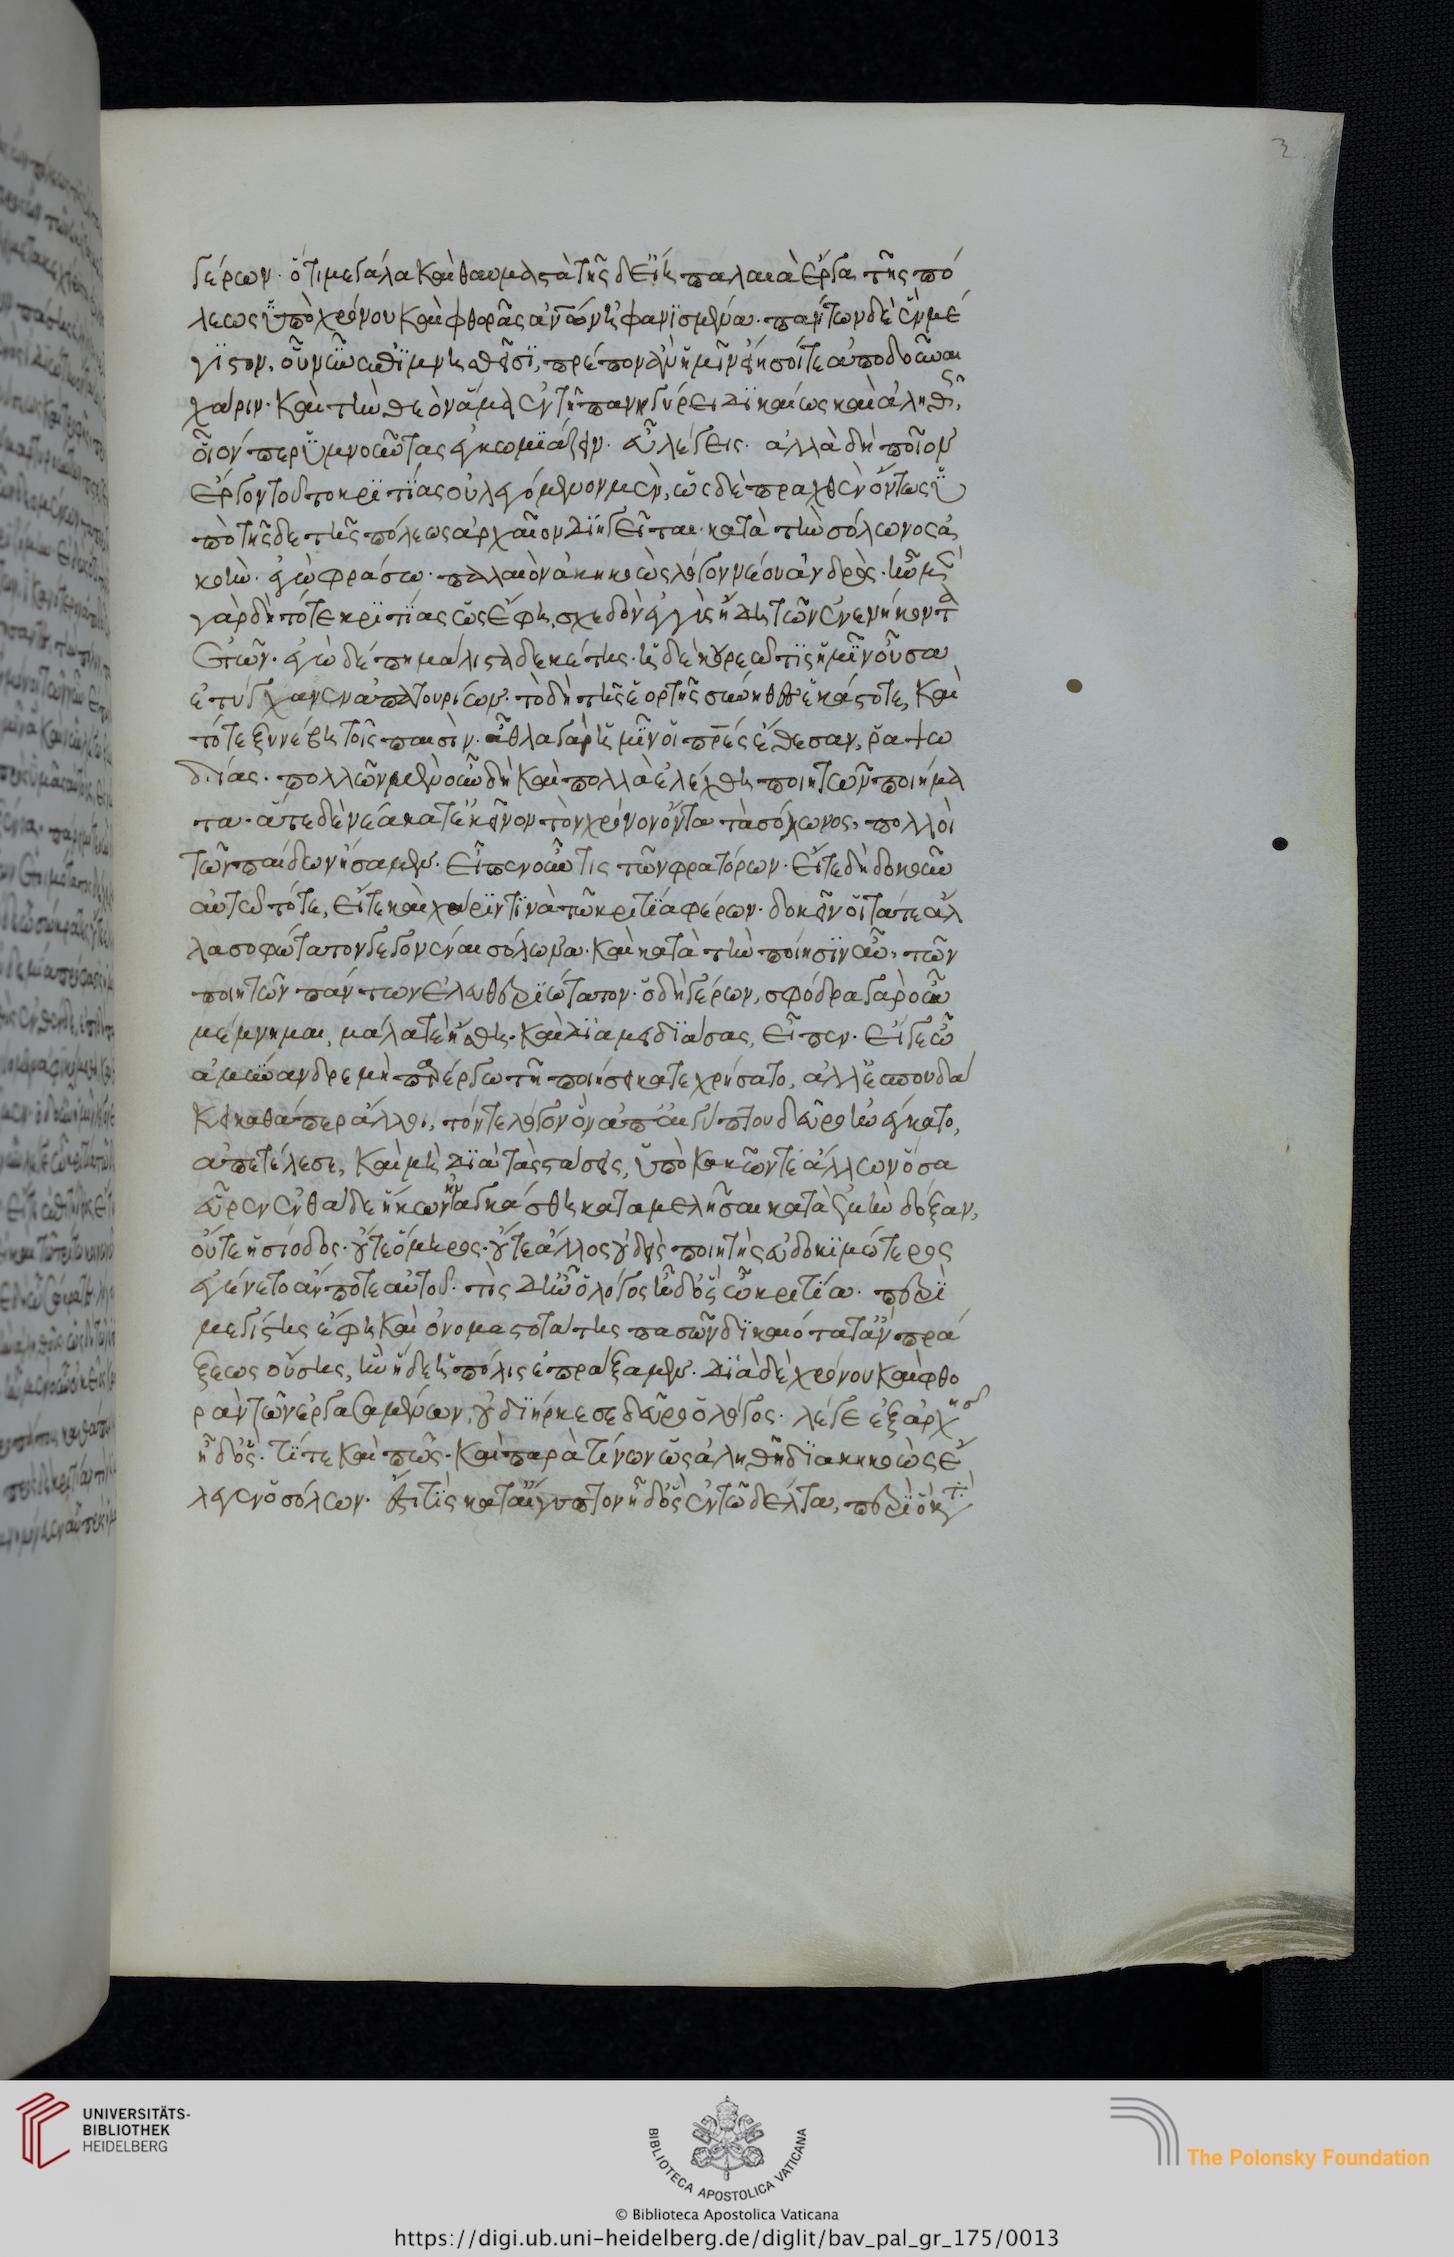 3
γέρων· ὅτι μεγάλα καὶ θαυμαστὰ τῆσδ' εἴη παλαιὰ ἔργα τῆς πό
λεως ὑπὸ χρόνου καὶ φθορᾶς ἀνων ἠφανϊσμένα· πάντων δὲ ἓν μέ
γϊστον, οὗ νῦν ἐπϊμνησθεῖσϊ, πρέπον ἂν ἡμῖν εἴη σοί τε ἀποδοῦναι
χάριν· καὶ τὴν θεὸν ἅμα ἐν τῇ πανηγύρει δϊκαίως καὶ ἀληθῶς,
οἷόν περ ὑμνοῦντας ἐγκωμϊάζειν· εὖ λέγεις· ἀλλὰ δὴ ποῖον
ἔργον τοῦτο κρϊτίας οὐ λεγόμενον μὲν, ὡς δὲ πραχθὲν ὄντως ὑ
πὸ τῆσδε τῆς πόλεως ἀρχαῖον δϊηγεῖται· κατὰ τὴν σόλωνος ἀ
κοήν· ἐγὼ φράσω· παλαιὸν ἀκηκοὼς λόγον οὐ νέου ἀνδρός· ἦν μὲν
γὰρ δὴ τότε κρϊτίας ὡς ἔφη, σχεδὸν ἐγγὺς ἤδη τῶν ἐνενήκοντα
ἐτῶν· ἐγὼ δέ πη μάλιστα δεκέτης· ἡ δὲ κουρεῶτϊς ἡμῖν οὖσα
ἐτύγχανεν ἀπατουρίων· τὸ δὴ τῆς ἑορτῆς σύνηθες ἑκάστοτε, καὶ
τότε ξυνέβη τοῖς παισὶν· ἆθλα γὰρ ἡμῖν οἱ πρες ἔθεσαν, ῥαψω
δίας· πολλῶν μὲν οὖν δὴ καὶ πολλὰ ἐλέχθη ποιητῶν ποιήμα
τα· ἅτε δὲ νέα κατ' ἐκεῖνον τὸν χρόνον ὄντα τὰ σόλωνος, πολλοὶ
τῶν παίδων ᾔσαμεν· εἶπεν οὖν τις τῶν φρατόρων· εἴτε δὴ δοκοῦν
αὐτῶ τότε, εἴτε καὶ χάρϊν τϊνὰ τῶ κριτϊα φέρων· δοκεῖν οἱ τά τε ἄλ
λα σοφώτατον γεγονέναι σόλωνα· καὶ κατὰ τὴν ποίησϊν αὖ, τῶν
ποιητῶν πάντων ἐλευθερϊώτατον· ὁ δὴ γέρων, σφόδρα γὰρ οὖν
μέμνημαι, μάλα τε ἥσθη· καὶ δϊαμειδϊάσας, εἶπεν· εἴ γε ὦ
ἀμύνανδρε μὴ παρέργω τῇ ποιήσει κατεχρήσατο, ἀλλ' ἐσπουδά
κει καθάπερ ἄλλοι, τόν τε λόγον ὃν ἀπ' αἰγύπτου δεῦρο ἠνέγκατο,
ἀπετέλεσε, καὶ μὴ δϊὰ τὰς στάσεις, ὑπὸ κακῶν τε ἄλλων ὅσα
εὗρεν ἐνθάδε ἥκων ἠναγκάσθη καταμελῆσαι κατὰ ἐμὴν δόξαν,
οὔτε ἡσίοδος· οὔτε ὅμηρος· οὔτε ἄλλος οὐδεὶς ποιητὴς εὐδοκϊμώτερος
ἐγένετο ἄν ποτε αὐτοῦ· τὶς δ' ἦν ὁ λόγος ἦ δ' ὃς ὦ κριτϊα· περϊ
μεγίστης ἔφη καὶ ὀνομαστοτάτης πασῶν δϊκαιότατ' ἂν πρά
ξεως οὔσης, ἣν ἥδε ἡ πόλις ἔπραξε μὲν· δϊὰ δὲ χρόνου καὶ φθο
ρὰν τῶν ἐργασαμένων, οὐ δϊήρκεσε δεῦρο ὁ λόγος· λέγε ἐξ ἀρχῆς
ἦ δ' ὅς· τί τε καὶ πῶς· καὶ παρὰ τίνων ὡς ἀληθῆ δϊακηκοὼς ἔ
λεγεν ὁ σόλων· ἔστι τὶς κατ' αἴγυπτον ἦ δ' ὃς ἐν τῶ δέλτα, περϊ ὃ κατὰ
UNIVERSITÄTS-
BIBLIOTHEK
HEIDELBERG
BIBLIOTECA APOSTOLICA VATICANA
The Polonsky Foundation
© Biblioteca Apostolica Vaticana
https://digi.ub.uni-heidelberg.de/diglit/bav_pal_gr_175/0013